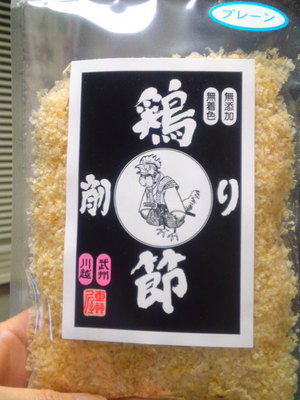 プレーン
無添加
無着色
鶏
削り
節
武州
川越